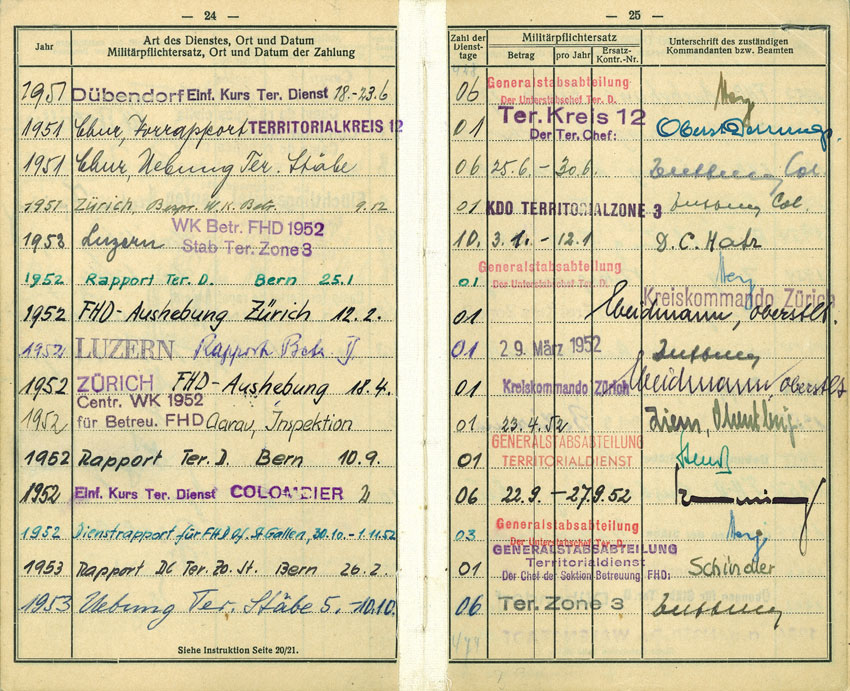 — 24 —
Jahr
Art des Dienstes, Ort und Datum
Militärpflichtersatz, Ort und Datum der Zahlung
1951 Dübendorf Einf. Kurs Ter. Dienst 18.-23.6
1951 Chur, Vorrapport TERRITORIALKREIS 12
1951 Chur, Uebung Ter. Stäbe
1951 Zürich, Bespr. W.K. Betr. 9.12
WK Betr. FHD 1952
1953 Luzern Stab Ter. Zone 3
1952 Rapport Ter. D. Bern 25.1
1952 FHD-Aushebung Zürich 12.2.
1952 LUZERN Rapport Betr.
1952 ZÜRICH FHD-Aushebung 18.4.
Centr. WK 1952
1952 für Betreu. FHD Aarau, Inspektion
1952 Rapport Ter. D. Bern 10.9.
1952 Einf. Kurs Ter. Dienst COLOMBIER 2
1952 Dienstrapport für FHD Of. St. Gallen, 30.10.-1.11.52
1953 Rapport DC Ter. Zo. St. Bern 26.2.
1953 Uebung Ter. Stäbe 5.-10.10.
Siehe Instruktion Seite 20/21.
— 25 —
Zahl der Dienst-tage
Militärpflichtersatz
Betrag
pro Jahr
Ersatz-Kontr.-Nr.
Unterschrift des zuständigen
Kommandanten bzw. Beamten
Generalstabsabteilung
06 Der Unterstabschef Ter. D.
Ter. Kreis 12
01 Der Ter. Chef: Oberst
06 25.6. – 30.6. Col.
01 KDO TERRITORIALZONE 3 Col.
10. 3.1. – 12.1 D.C. Hatz
Generalstabsabteilung
01 Der Unterstabschef Ter. D.
Kreiskommando Zürich
01 Weidmann, Oberstlt.
01 29. März 1952
01 Kreiskommando Zürich Weidmann Oberstlt
01 23.4.52
GENERALSTABSABTEILUNG
01 TERRITORIALDIENST
06 22.9. – 27.9.52
Generalstabsabteilung
03 Der Unterstabschef Ter. D.
GENERALSTABSABTEILUNG
Territorialdienst
01 Der Chef der Sektion Betreuung FHD: Schindler
06 Ter. Zone 3